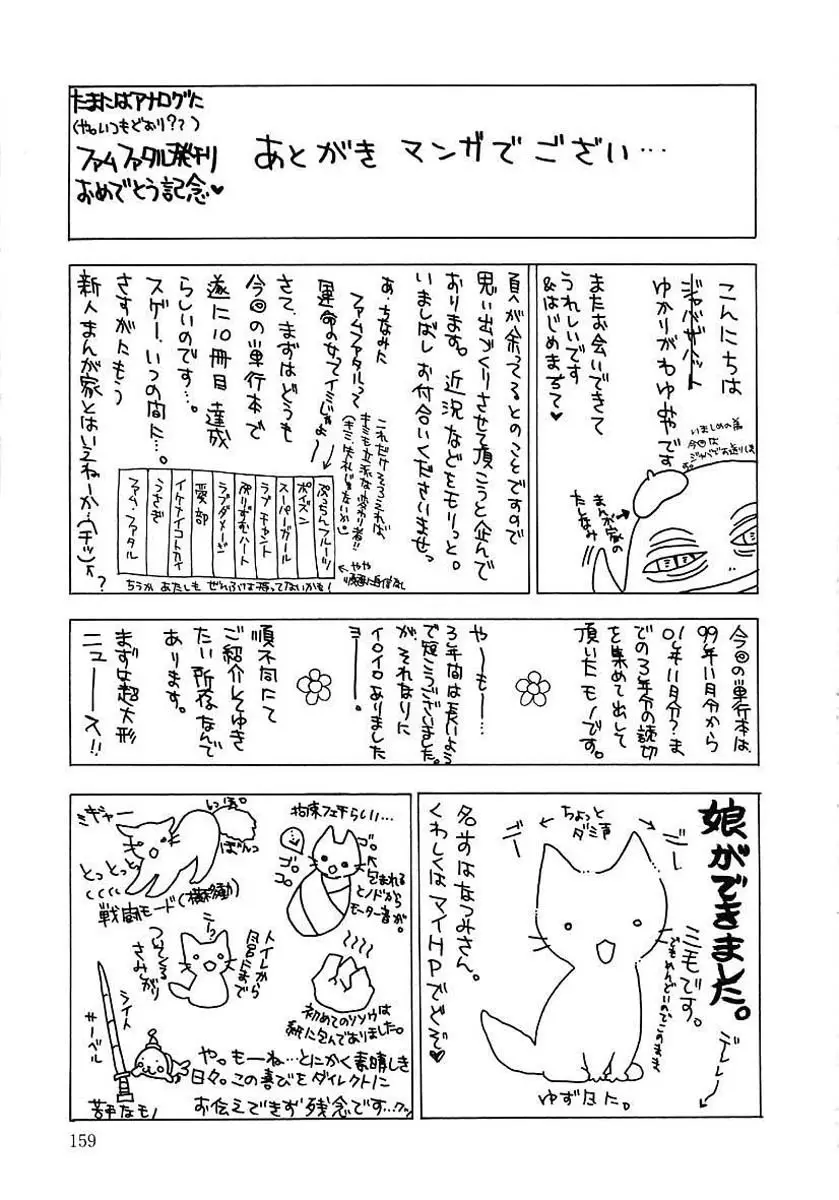 たまにはアナログに
(やっ、いつもどおり？？)
ファムファタル発刊
おめでとう記念♥
あとがき マンガで ござい…
こんにちは
ジャバザハット
ゆかりがわゆみやです
またお会いできて
うれしいです
&はじめまちて♥
いましめの為
今回は
ジャバでお送りしま
す。
まんが家の
たしなみ
頁が余ってるとのことですので
思い出づくりさせて頂こうと企んで
おります。近況などをモリっと。
いましばしお付合いくださいませっ
あ、ちなみに
ファムファタルって
運命の女ってイミじゃよ
これだけそろえれば、
キミも立派な変わり者!!
さて、まずはどうも
今回の単行本で
遂に10冊目達成
らしいのです…。
スゲー、いつの間に…。
さすがにもう
新人まんが家とはいえねーか…(チッ)←？
ぷっちんフルーツ
ポイズン
スーパーガール
ラブチャント
ぷりずむハート
ラブダメージ
愛部
イケナイコトカイ
うさぎ
ファム・ファタル
←やや
順番に自信なし
ちうか あたしも ぜんぶは持ってないかも！
今回の単行本は、
99年11月分から
01年11月分？ま
での3年分の読切
を集めて出して
頂いたモノです。
や〜も〜…
3年間は長いよう
で短こうございました。
が、それなりに
イロイロありました
ヨー
順不同にて
ご紹介してゆき
たい所存なんで
あります。
まずは超大形
ニュース!!
娘ができました。
三毛です。
でもめんどいのでこのまま
デレレー
ちょっと
ダミ声
ゴー
ゴー
名まえはなつみさん。
くわしくはマイHPでどぞ♥
ゆず日た。
拘束フェチらしい…
ゴロ
ゴロ
包まれる
とノドから
モーター音が。
ミギャー
しっぽ
ぼんっ
とっとっ
戦闘モード(横移動)
トイレから
風呂にまで
ついてくる
さみしがり
うっ
初めてのソソウは
紙に包んでありました。
シイト
サーベル
苦手なモノ
や。もーね…とにかく素晴しき
日々。この喜びをダイレクトに
お伝えできず残念です…クッ
159